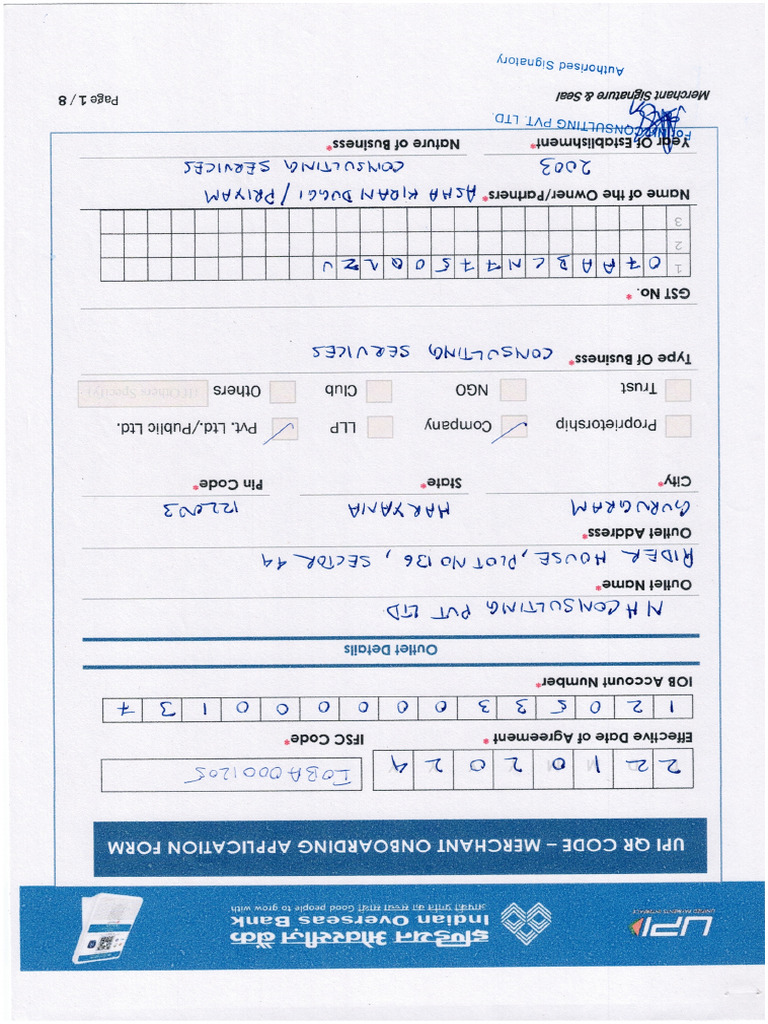 UPI
UNIFIED PAYMENTS INTERFACE
इण्डियन ओवरसीज़ बैंक
Indian Overseas Bank
आपकी प्रगति का सच्चा साथी Good people to grow with
UPI QR CODE – MERCHANT ONBOARDING APPLICATION FORM
2 2 1 0 2 0 2 4 IOBA0001205
Effective Date of Agreement * IFSC Code*
1 2 0 5 3 3 0 0 0 0 0 1 3 7
IOB Account Number*
Outlet Details
NH CONSULTING PVT LTD
Outlet Name*
RIDER HOUSE, PLOT NO 136, SECTOR 44
Outlet Address*
GURUGRAM HARYANA 122003
City* State* Pin Code*
Proprietorship Company LLP Pvt. Ltd./Public Ltd.
Trust NGO Club Others (If Others Specify)
Type Of Business* CONSULTING SERVICES
GST No. *
1 07AABCN7750Q1ZU
2
3
Name of the Owner/Partners* ASHA KIRAN DUGGI / PRIYAM
2003 CONSULTING SERVICES
Year Of Establishment* Nature of Business*
For NH CONSULTING PVT. LTD.
Merchant Signature & Seal Page 1 / 8
Authorised Signatory